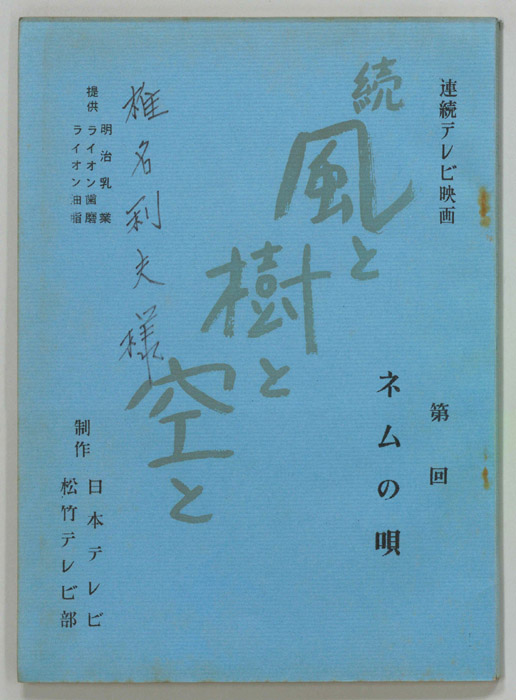 連続テレビ映画
続
風と
樹と
空と
第 回
ネムの唄
椎名利夫様
提供
明治乳業
ライオン歯磨
ライオン油脂
制作
日本テレビ
松竹テレビ部